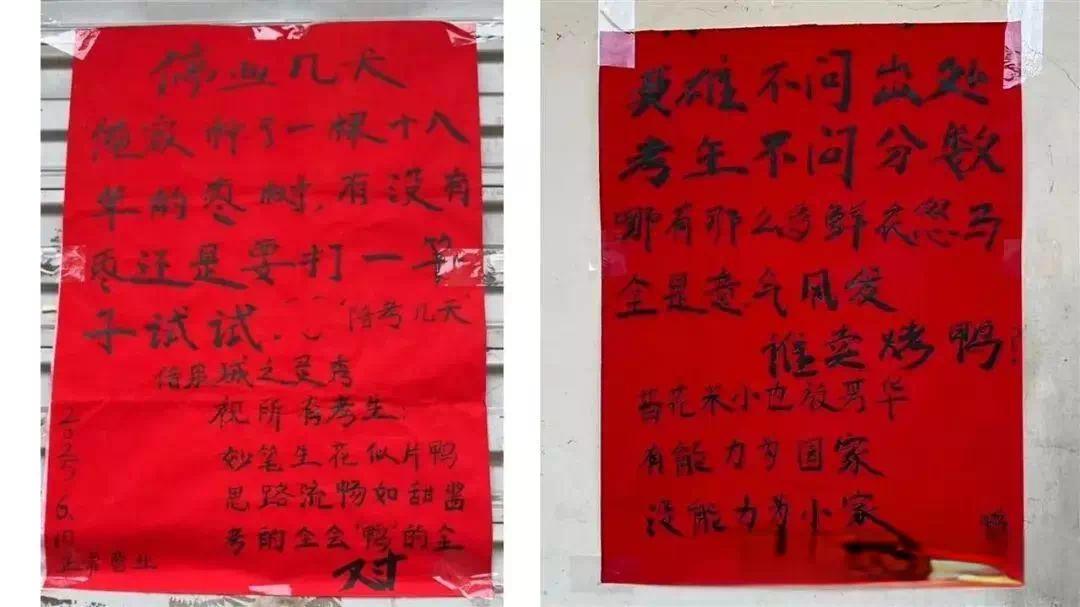 停业几天
俺家种了一棵十八
年的枣树,有没有
枣还是要打一竿
子试试.
"陪考几天"
结果城之是考
祝所有考生:
妙笔生花似片鸭
思路流畅如甜酱
考的全会"鸭"的全
对
2025.6.
正常营业
英雄不问出处
考生不问分数
哪有那么多鲜衣怒马
全是意气风发
谁卖烤鸭!
苔花米小也放芳华
有能力为国家
没能力为小家